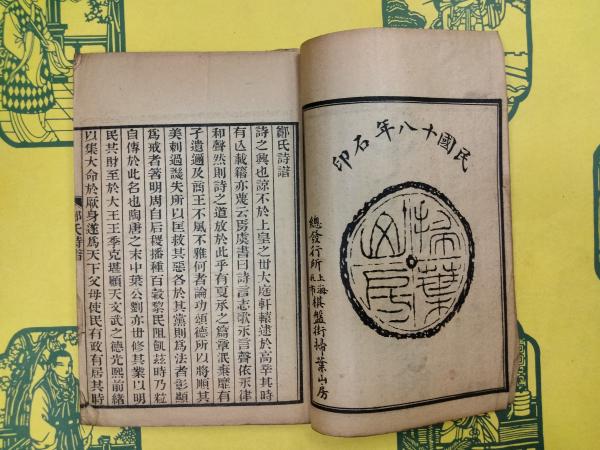 民國十八年石印
掃葉山房
總發行所上海北市棋盤街掃葉山房
鄭氏詩譜
詩之興也諒不於上皇之世大庭軒轅逮於高辛其時
有亡載籍亦蔑云焉虞書曰詩言志歌永言聲依永律
和聲然則詩之道放於此乎有夏承之篇章泯棄靡有
孑遺邇及商王不風不雅何者論功頌德所以將順其
美刺過譏失所以匡救其惡各於其黨則為法者彰顯
為戒者著明周自后稷播種百穀黎民阻飢茲時乃粒
自傳於此名也陶唐之末中葉公劉亦世修其業以明
民共財至於大王王季克堪顧天文武之德光熙前緒
以集大命於厥身遂為天下父母使民有政有居其時
鄭氏詩譜